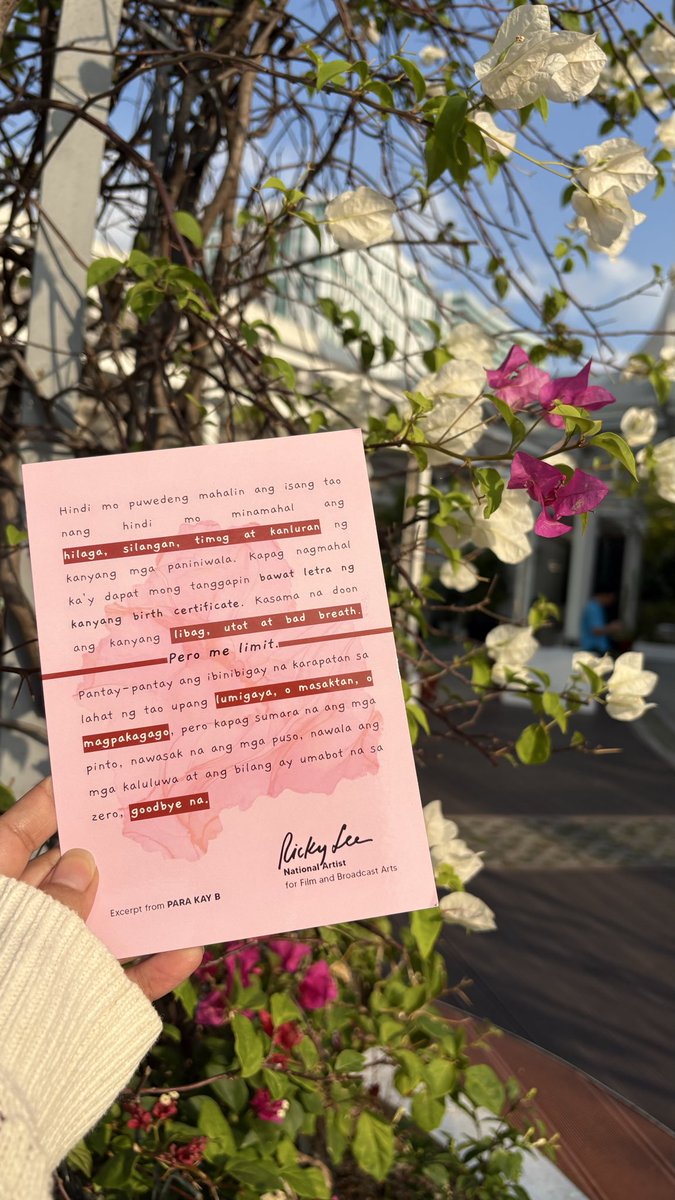 Hindi mo puwedeng mahalin ang isang tao
nang hindi mo minamahal ang
hilaga, silangan, timog at kanluran ng
kanyang mga paniniwala. Kapag nagmahal
ka'y dapat mong tanggapin bawat letra ng
kanyang birth certificate. Kasama na doon
ang kanyang libag, utot at bad breath.
Pero me limit.
Pantay-pantay ang ibinibigay na karapatan sa
lahat ng tao upang lumigaya, o masaktan, o
magpakagago, pero kapag sumara na ang mga
pinto, nawasak na ang mga puso, nawala ang
mga kaluluwa at ang bilang ay umabot na sa
zero, goodbye na.
Ricky Lee
National Artist
for Film and Broadcast Arts
Excerpt from PARA KAY B